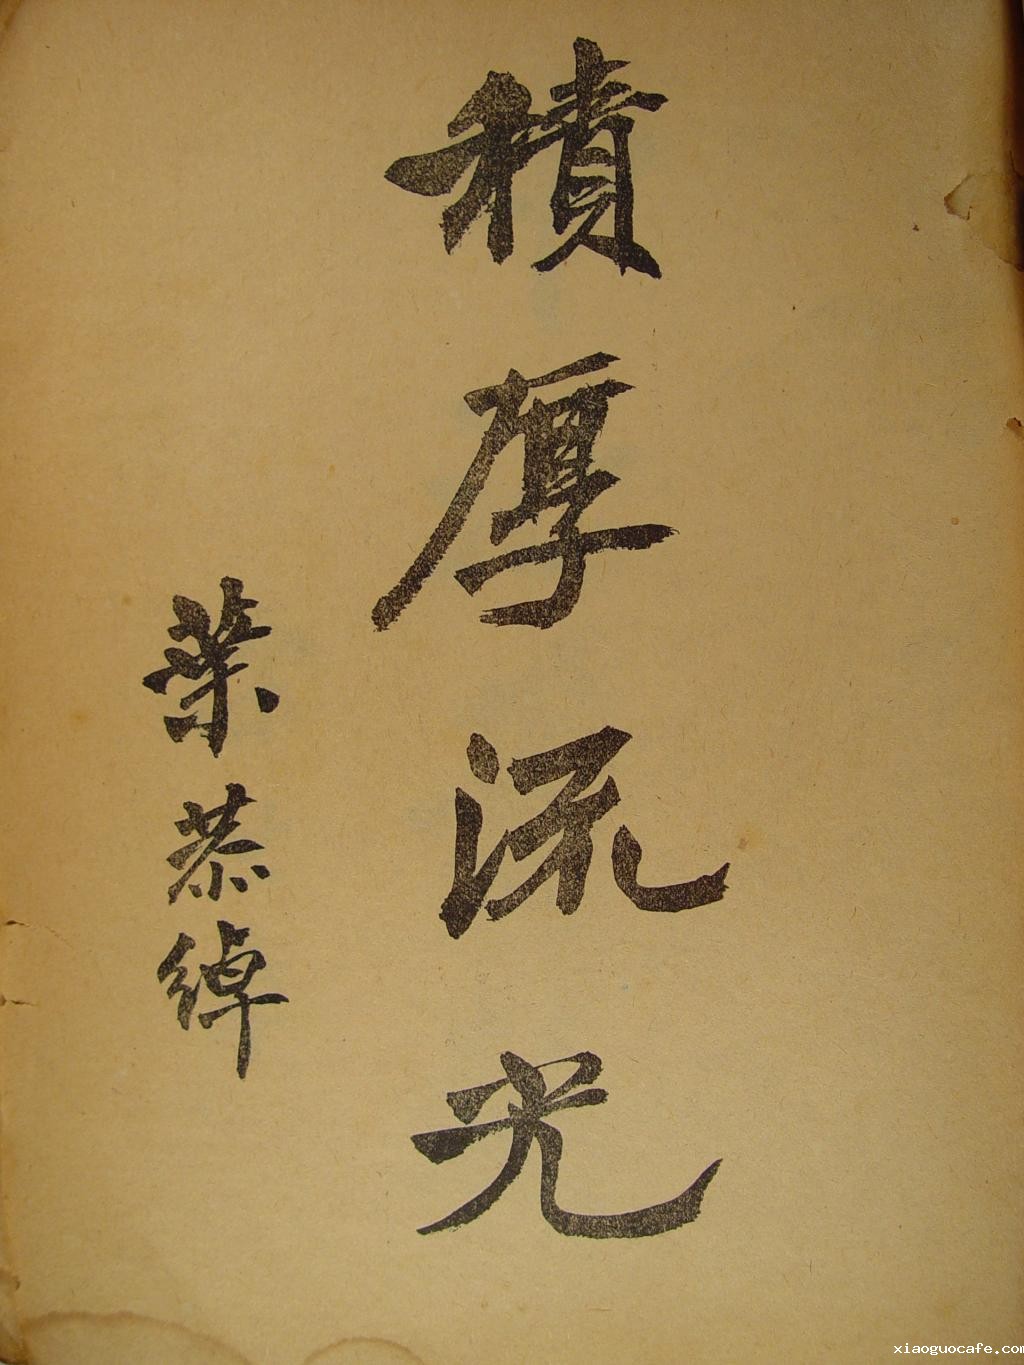 積厚流光
葉恭綽
xiaoguocafe.com